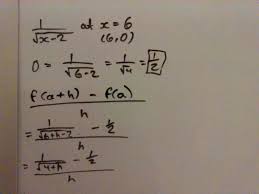 1/√(x-2) at x = 6
(6,0)
0 = 1/√(6-2) = 1/√4 = 1/2
(f(a+h) - f(a))/h
= (1/√(6+h-2) - 1/2)/h
= (1/√(4+h) - 1/2)/h